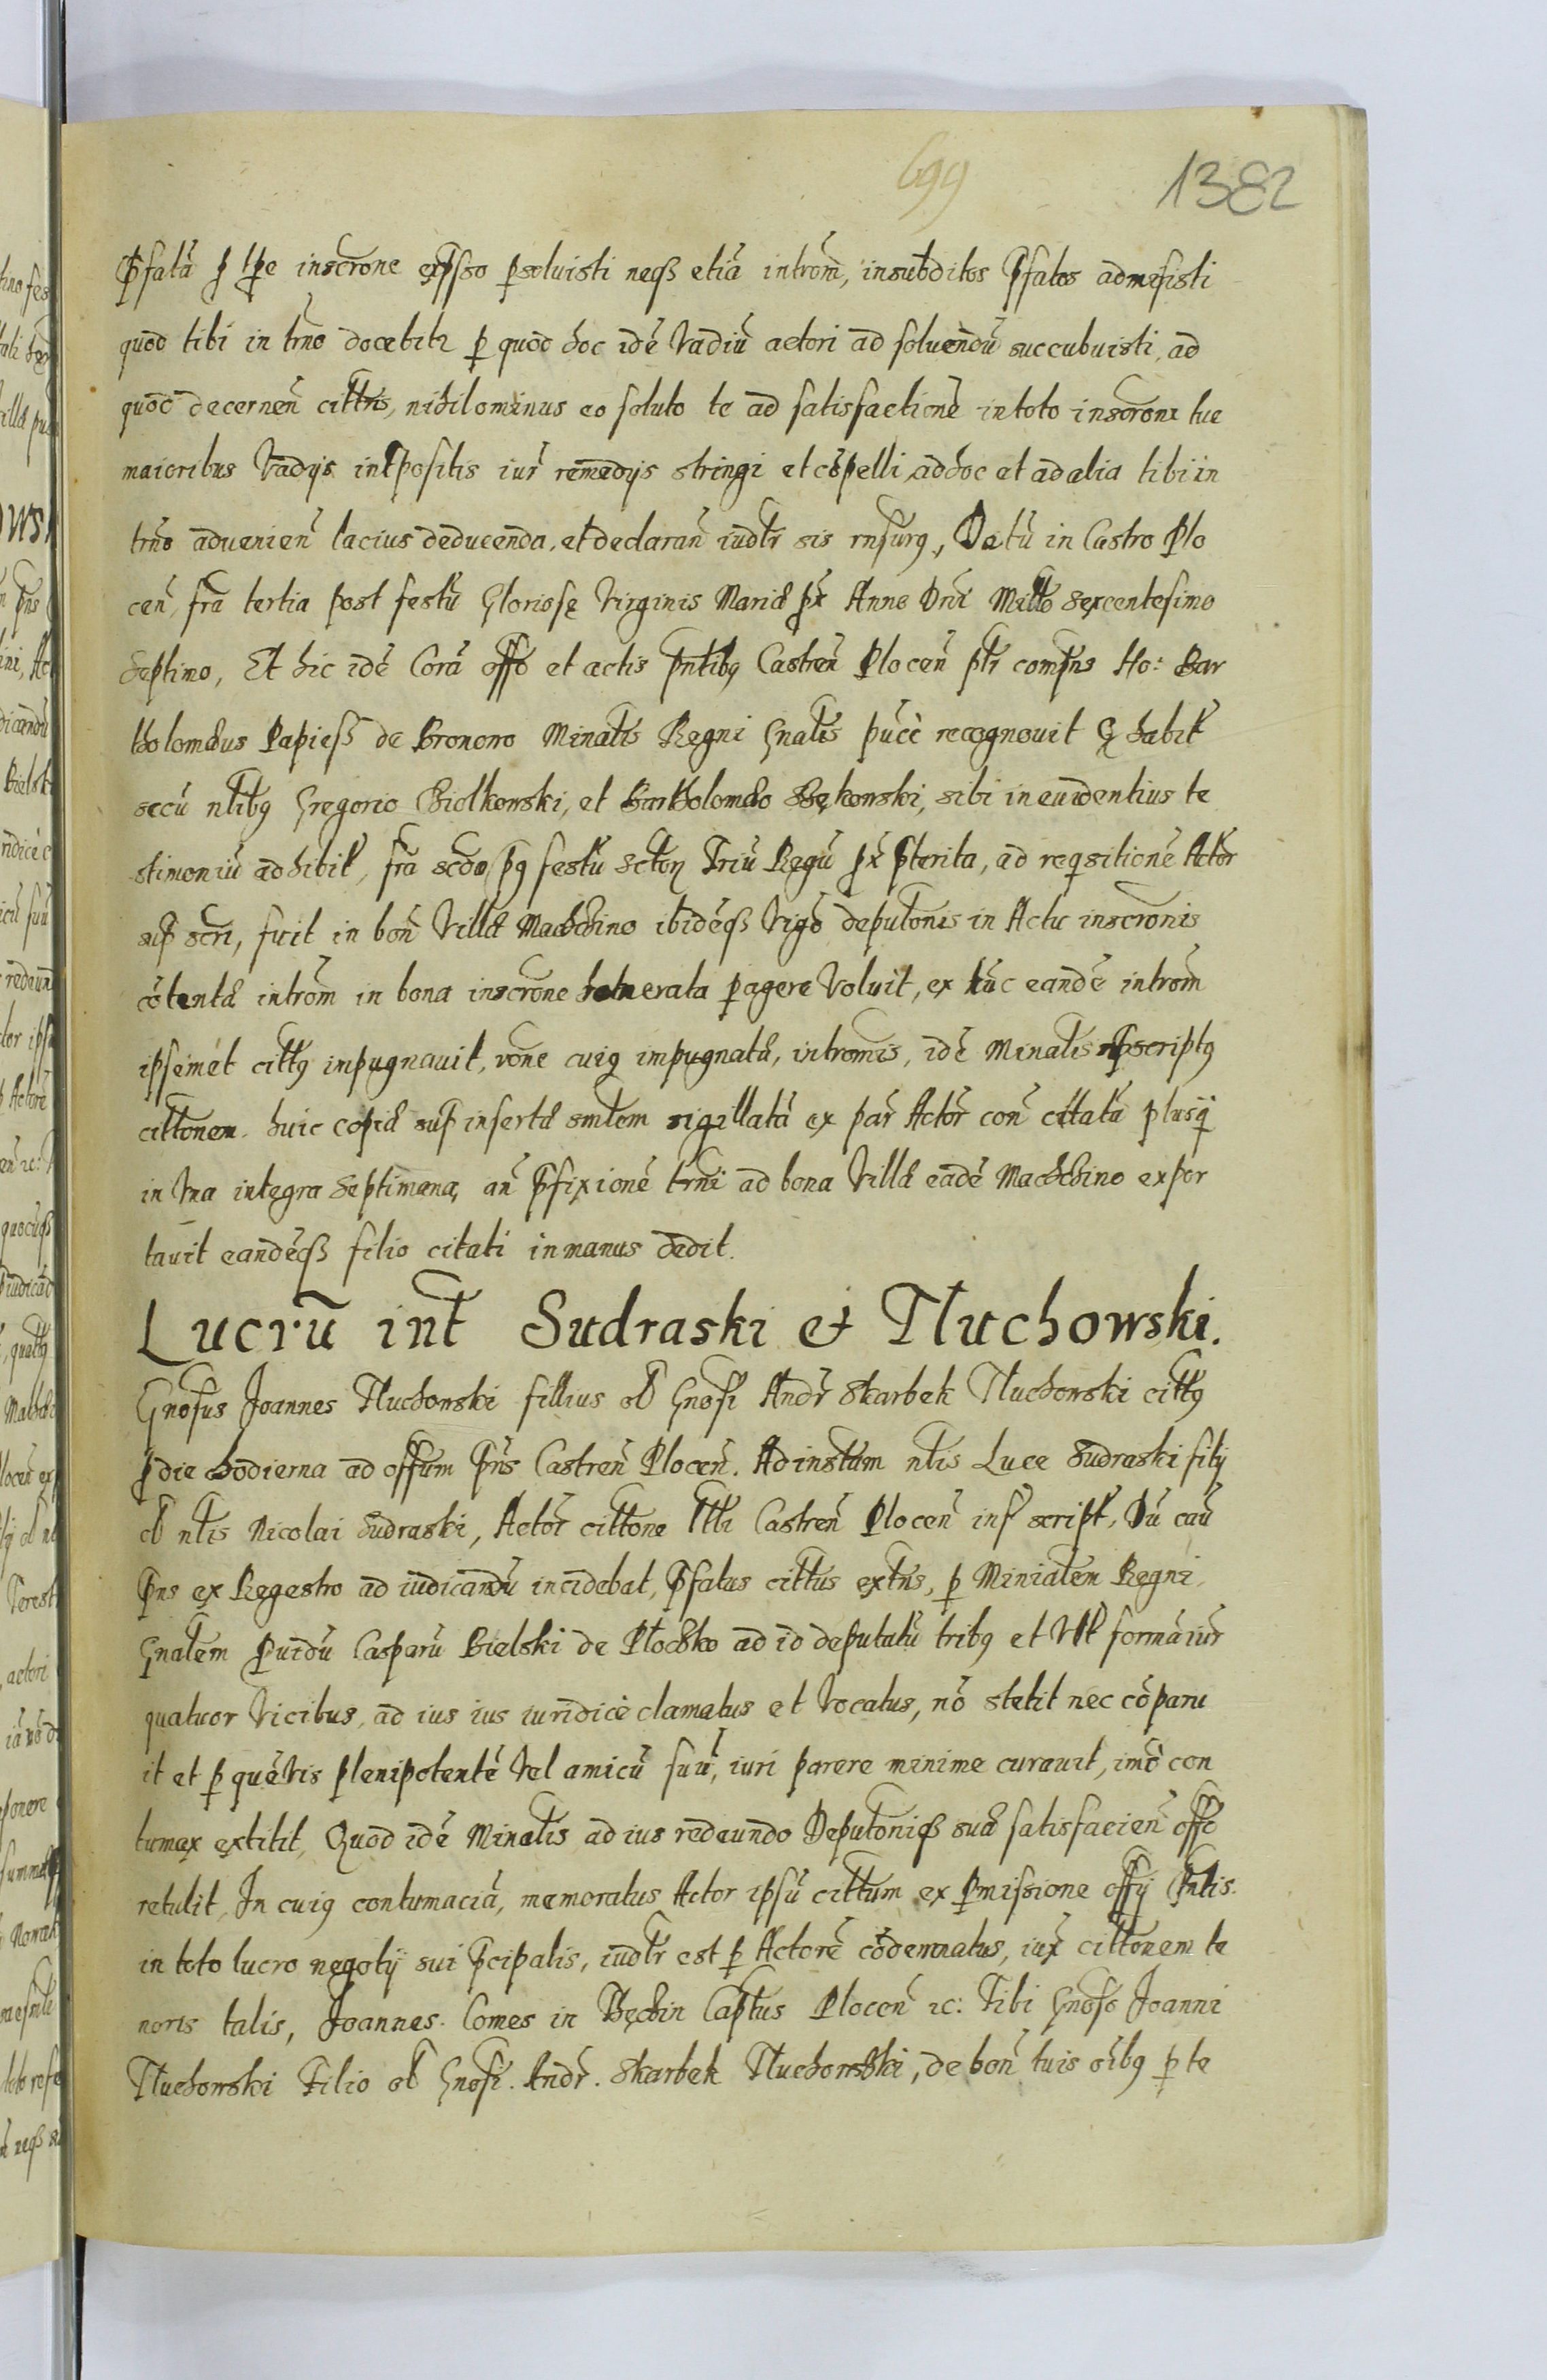 699 1382
Pfatã p tpe inscrone expsso psoluisti neqß etiã introm̃, insubditos Pfatos admisisti
quod tibi in trno docebitr p quod hoc idẽ Vadiũ actori ad soluendũ succubuisti, ad
quod decernen̄ cittris, nihilominus eo soluto te ad satisfactionẽ in toto inscrone tue
maioribus Vadijs intpositis iur̃ remedijs stringi et cõpelli, ad hoc et ad alia tibi in
trno aduenien̄ lacius deducenda, et declaran̄ iudtr sis rnsurg, Datũ in Castro Plo
cen̄, fra tertia post festũ Gloriosę Virginis Mariæ px Anno Dni Millo Sexcentesimo
Septimo, Et hic idẽ Corã offo et actis pntibg Castren̄ Plocen̄ ptr compns Ho: Bar
tholomæus Papieß de Bronowo Minalis Regni Gnalis pucè recognouit Q habit
secũ ntibg Gregorio Biolkowski, et Bartholomæo Sękowski, sibi in euidentius te
stimoniũ adhibit, fra scdo pg festũ Sctor Triũ Regũ px pterita, ad reqsitionẽ Actor
sup scri, fuit in bon̄ Villæ Machcino ibidẽqß Vigo deputonis in Actu inscronis
cõtentæ introm in bona inscrone pagere Voluit, ex tũc eandẽ introm
ipsemet cittg impugnauit, rone cuig impugnatæ, intromis, idẽ Minalis scriptg
cittonem huic copiæ sup insertæ smlem sigillatã ex par̃ Actor̃ con̄ citatũ plusq̃
in Vna integra Septimana, an̄ Pfixionẽ trni ad bona Villæ eadẽ Machcino expor
tauit eandẽqß filio citati in manus dedit.
Lucrũ int Sudraski et Tluchowski.
Gnosus Joannes Tluchowski fillius ol Gnosi Andr̃ Skarbek Tluchowski cittg
p die hodierna ad offum Pns Castren̄ Plocen̄. Ad instam ntis Luce Sudraski filij
ol ntis Nicolai Sudraski, Actor̃ cittone Ltti Castren̄ Plocen̄ inf script, Dũ cau
Pns ex Regestro ad iudicandũ incidebat, Pfatus cittus extns, p Minialem Regni
Gnalem Puidũ Casparũ Bielski de Plochko ad id deputatũ tribg et Vlt formã iur̃
quatuor Vicibus, ad ius ius iuridicè clamatus et Vocatus, nõ stetit nec cõparu
it et p quẽVis plenipotentẽ Vel amicũ suũ, iuri parere minime curauit, imò con
tumax extitit, Quod idẽ Minalis ad ius redeundo Deputoniqß suæ satisfacien̄ offo
retulit, In cuig contumaciã, memoratus Actor ipsũ cittum ex Pmissione offij Pntis.
in toto lucro negotij sui Pcipalis, iudtr est p Actorẽ cõdemnatus, iux cittonem te
noris talis, Joannes Comes in Tęchin Captus Plocen̄ etc: Tibi Gnoso Joanni
Tluchowski Filio ol Gnosi. Andr̃. Skarbek Tluchowski, de bon̄ tuis oibg p te